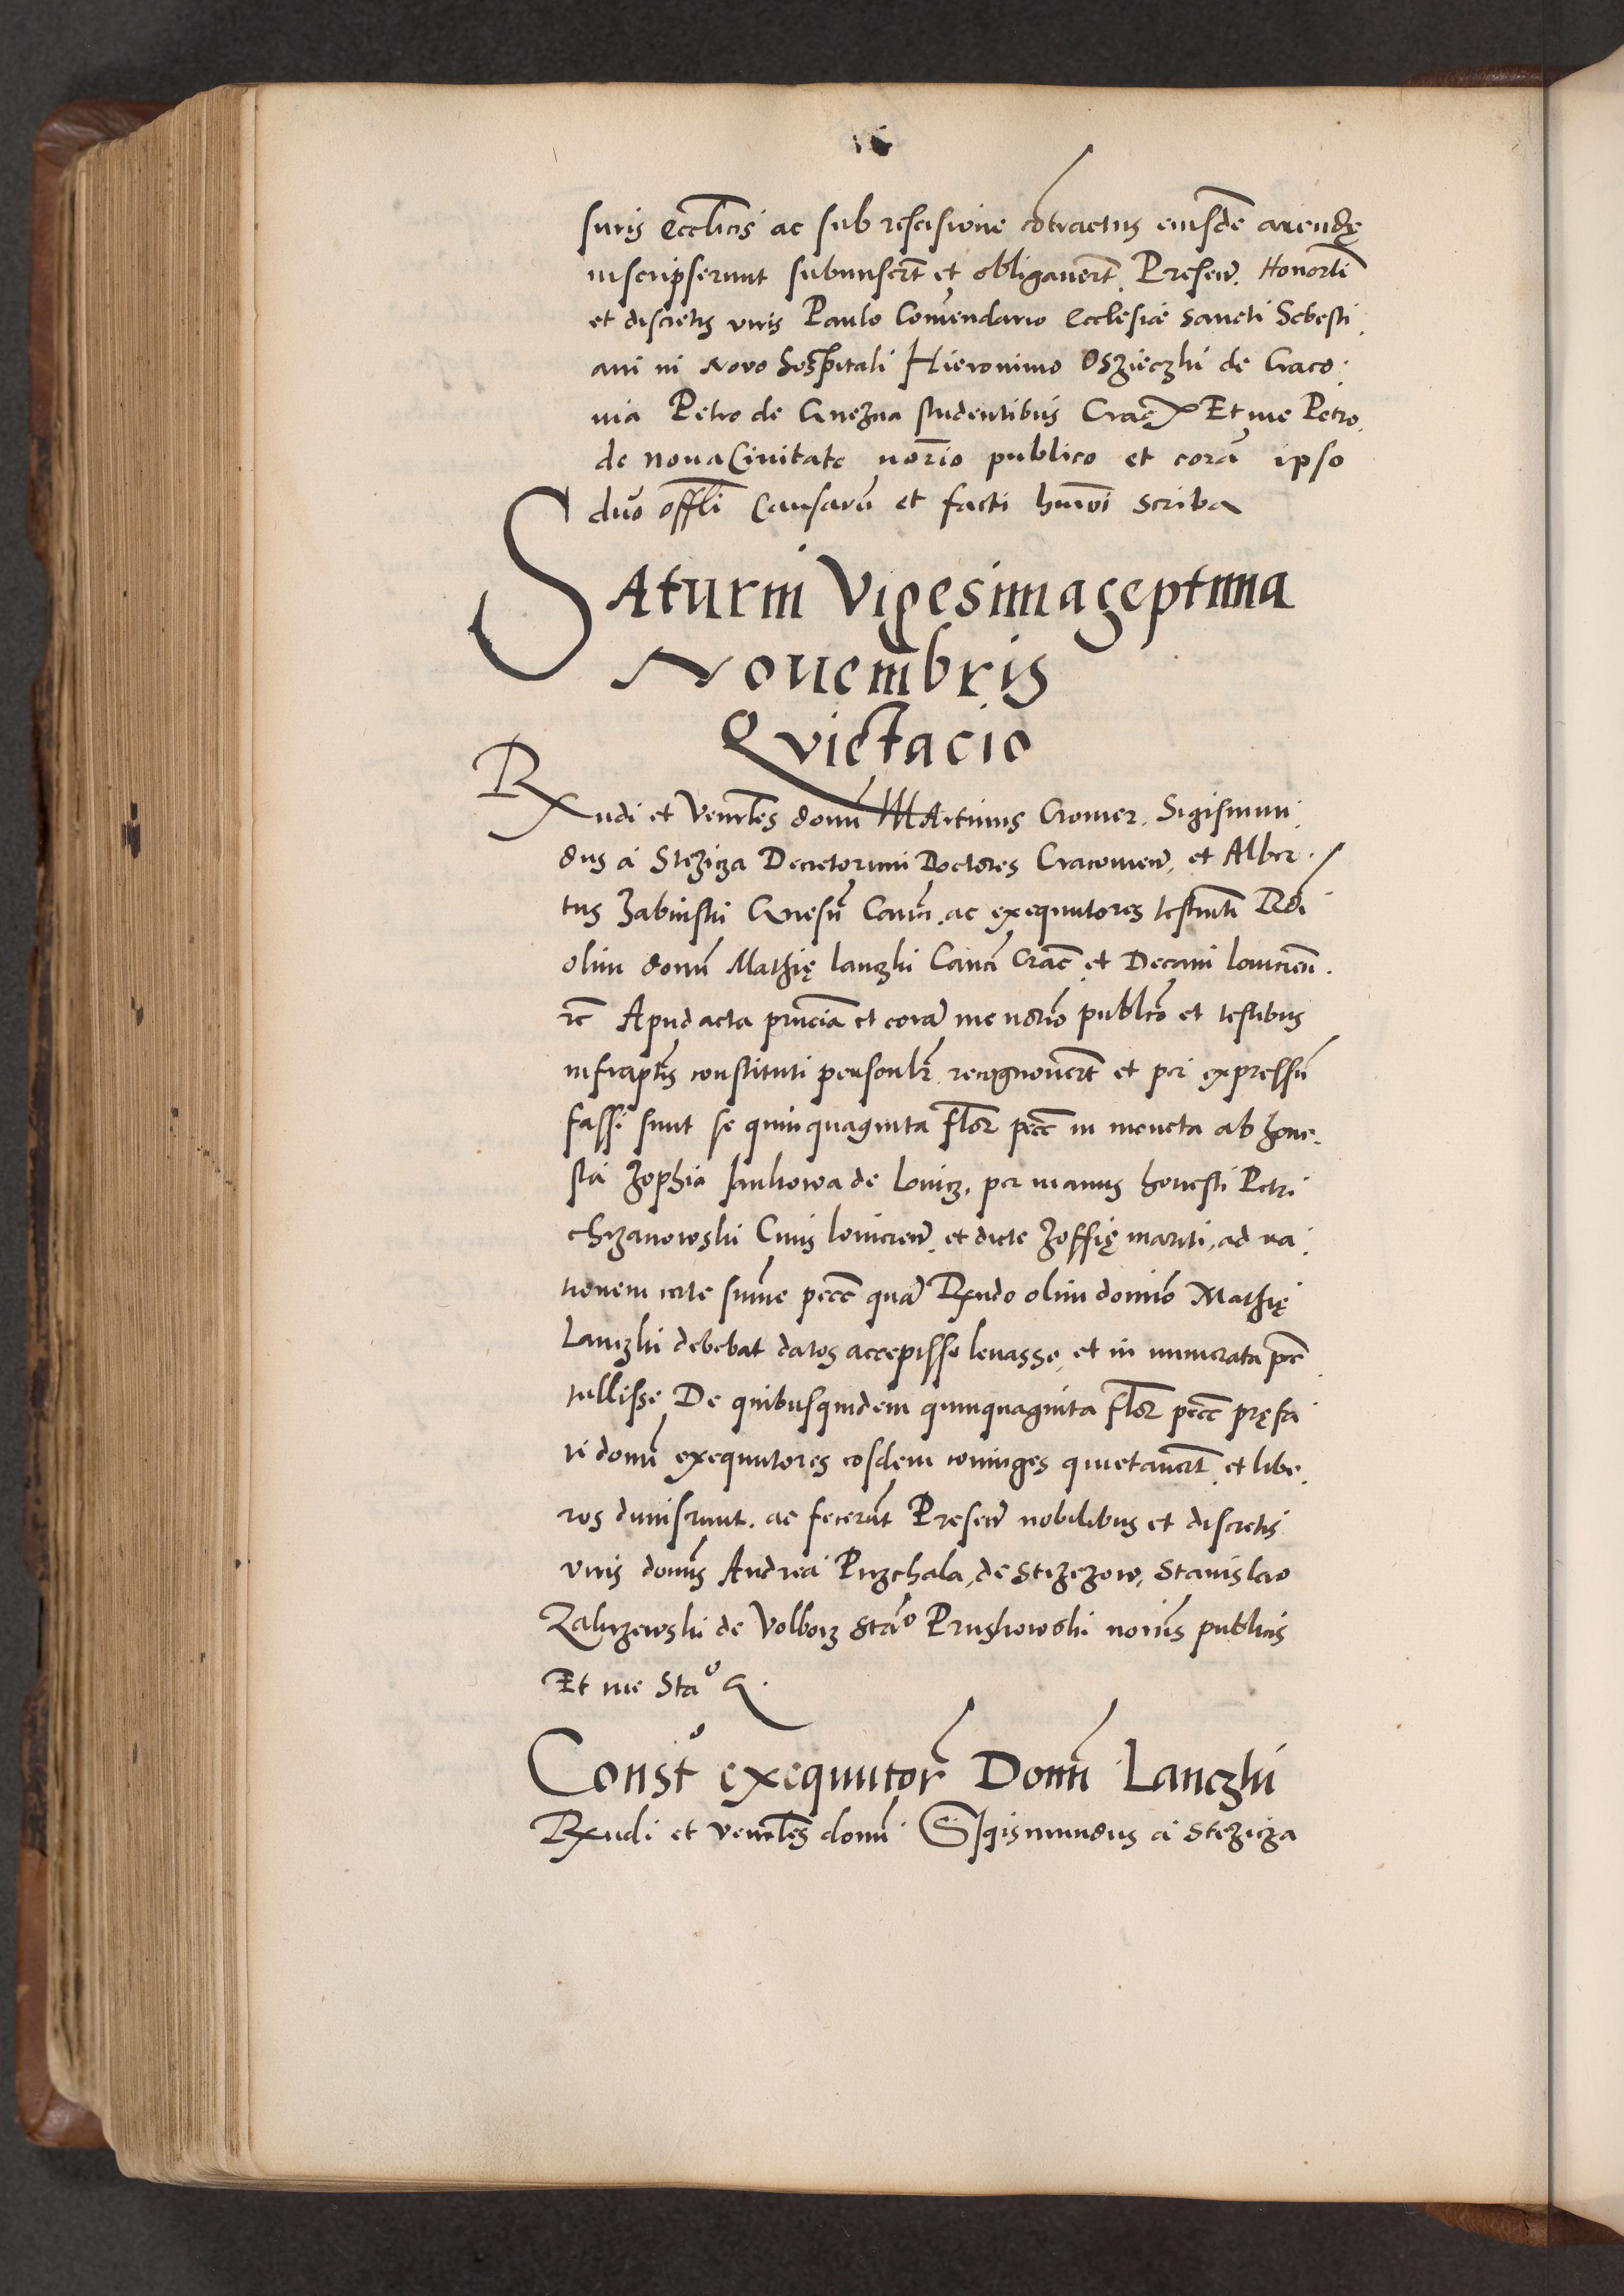 suris Ecclicis ac sub rescisione cōtractus eiusdē arendę
inscripserunt submiserūt et obligauerūt. Presen̄. Honor
et discretis viris Paulo Com̄endario Ecclesiæ Sancti Sebesti
ani in Novo hospitali Hieronimo Oszieczki de Craco
via Petro de Gnezna studentibus Crac̄ Et me Petro
de Nova Civitate nōrio publico et corā ipso
dn̄o offli Causarū et facti huiōi scriba
SAturni Vigesimaseptima
Nouembris
Qvictacio
Rxndi et Venrles domī MArtinus Cromer. Sigismun
dus a Stezicza Decretorum Doctores Cracovien̄. et Alber
tus Zabinski Gnesn̄ Canci. ac exequutores testmti Rdi
olim domī Mathię Lanczki Canci Crac̄ et Decani Louicien̄.
rc̄ Apud acta pn̄cia et corā me nōrio publico et testibus
infraptis constituti personlr̄ recognouerūt et per expressū
fassi sunt se quinquaginta flor pecc̄ in moneta ab hone
sta Zophia Jankowa de Lovicz. per manus honesti Petri
Chrzanowski Ciuis louicien̄. et dicte Zoffię mariti, ad ra
tionem certe sum̄e pecc̄ quā Rxndo olim domino Mathię
Lanczki debebat datos accepisse levasse, et in numerata pec̄
tullisse De quibusquidem quinquaginta flor pecc̄ pręfa
ti domī exequutores eosdem coniuges quietauerūt et libe
ros dimiserunt. ac fecerūt Presen̄ nobilibus et discretis
viris domīs Andrea Przechala, de Strzezow, Stanislao
Zakrzewski de Volborz Stā° Pruskowski noriis publicis
Et me Sta° G.
Const° exequutor Domī Lanczki
Rxndi et venrles domī SIgismundus a Stezicza